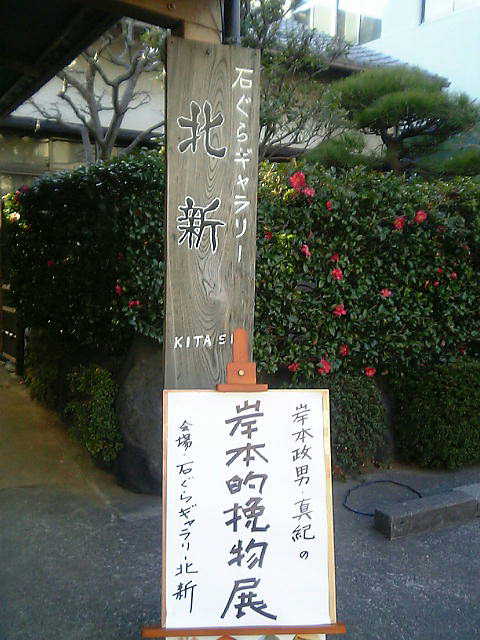 石ぐらギャラリー
北新
KITASI
岸本政男・真紀の
岸本的挽物展
会場 石ぐらギャラリー北新